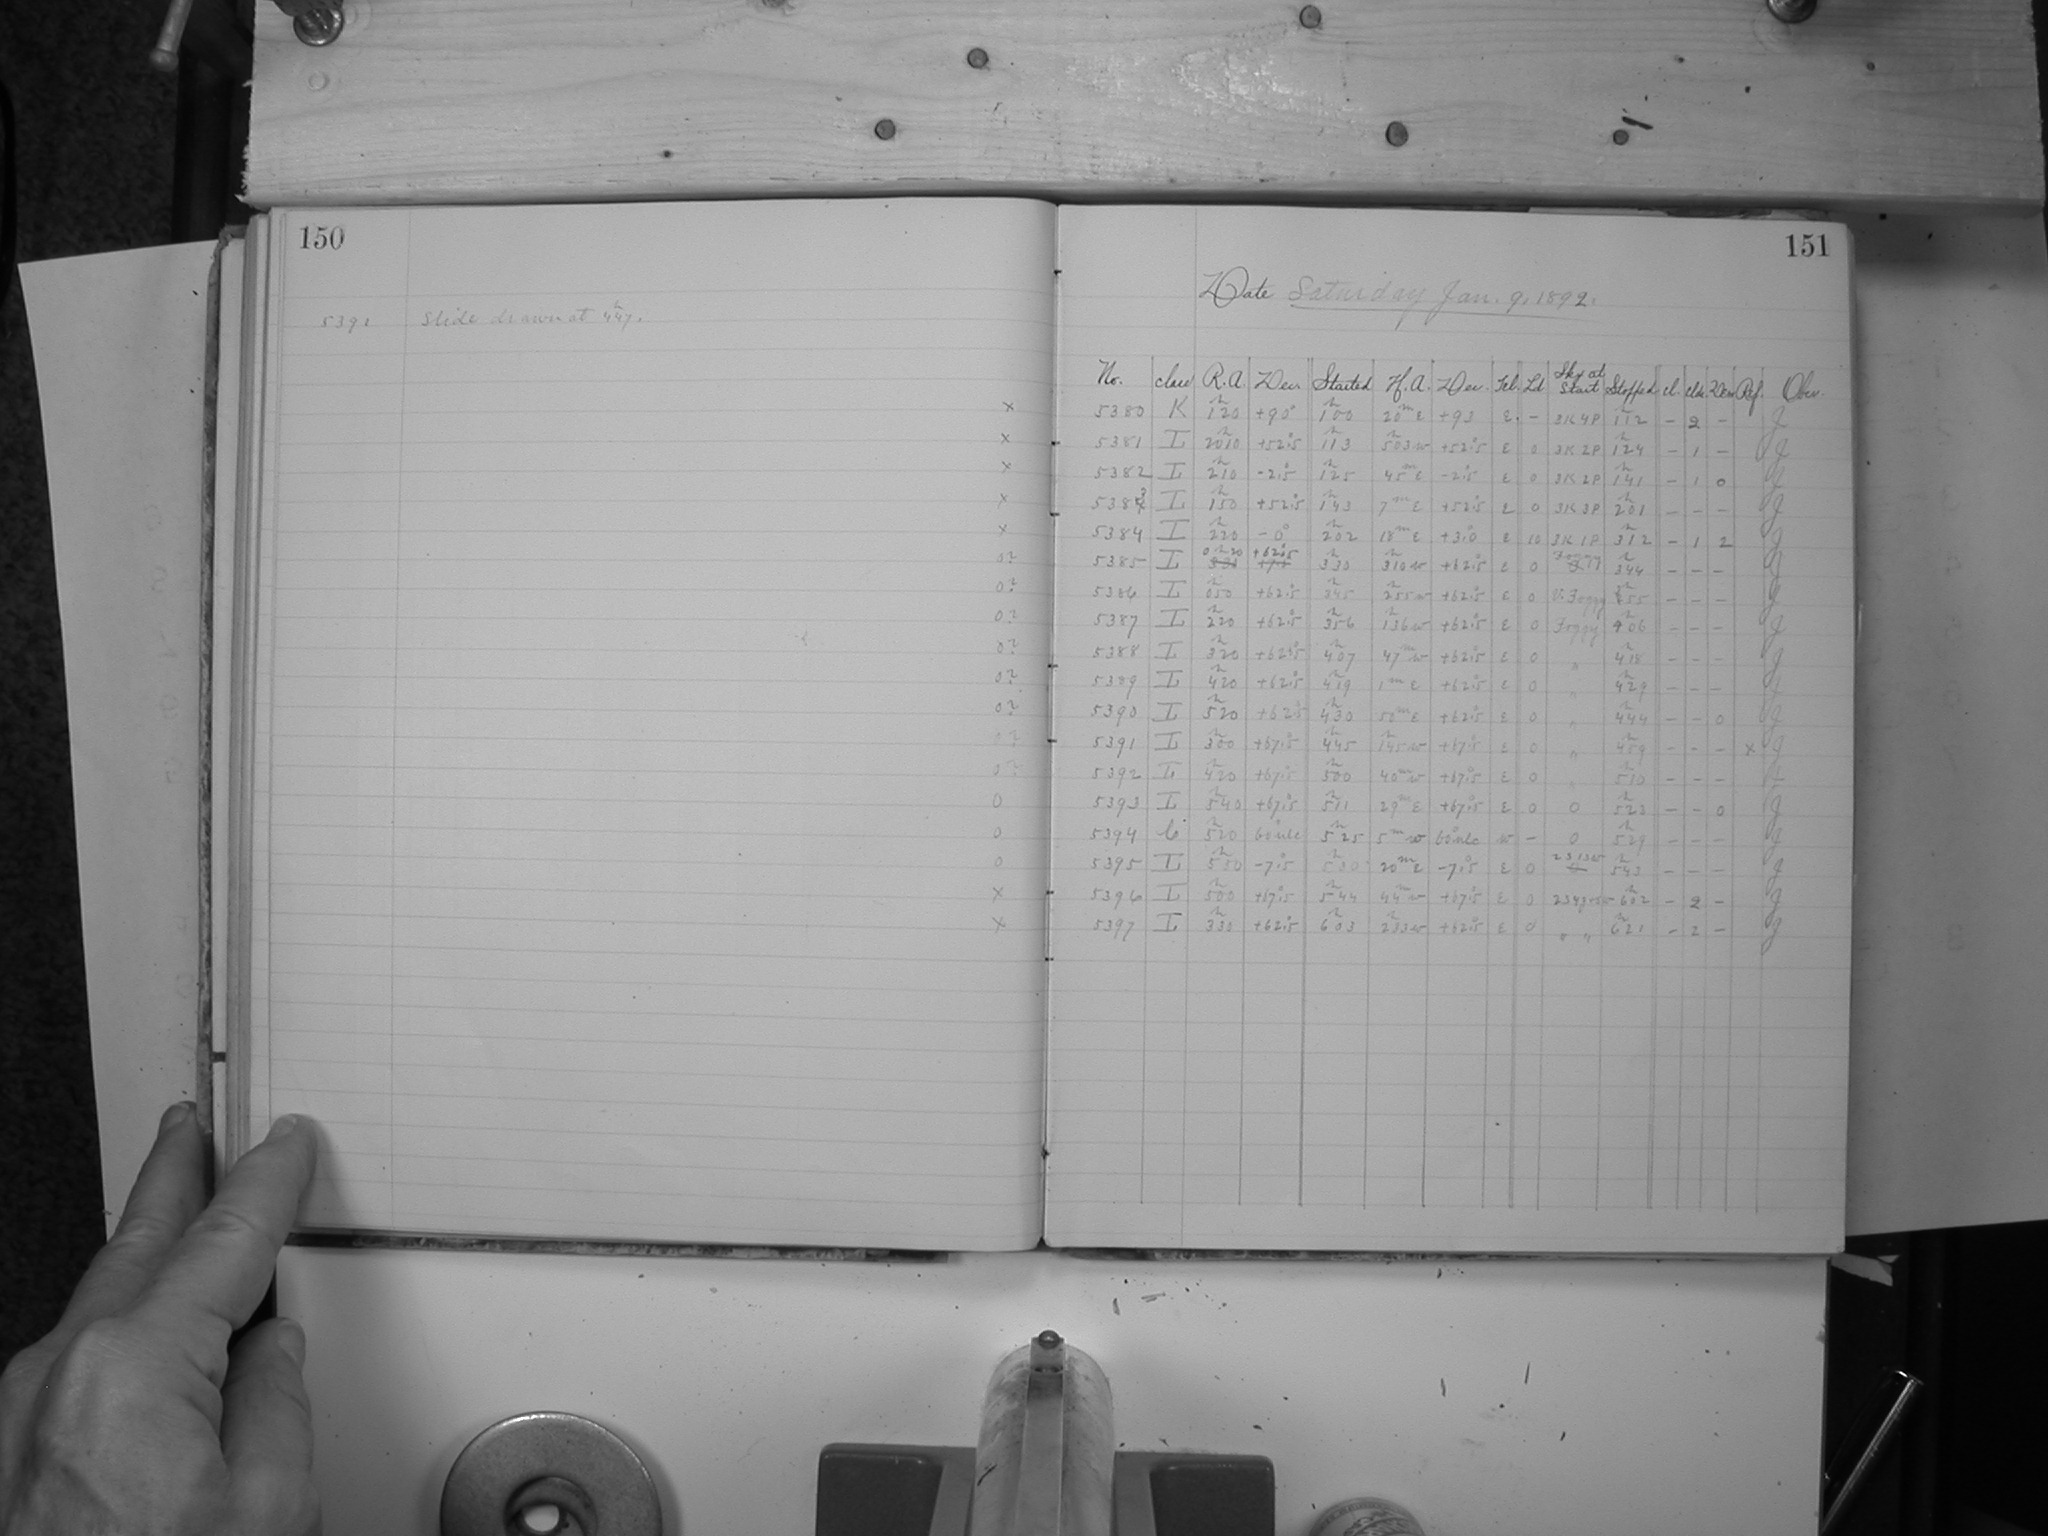 150
5391 Slide drawn at 4h47.
151
Date Saturday Jan. 9, 1892.
No. class R.A. Dec. Started H.A. Dec. Tel. Ld Sky at Start Stopped cl. clk. Dew Ref. Obsr.
x 5380 K 1h20 +90° 1h00 20m E +90 E. - 3K4P 1h12 - 2 - J
x 5381 I 20h10 +52°.5 1h13 5h03 w +52°.5 E 0 3K2P 1h24 - 1 - J
x 5382 I 2h10 -2°.5 1h25 45m E -2°.5 E 0 3K2P 1h41 - 1 0 J
x 5383 I 1h50 +52°.5 1h43 7m E +52°.5 E 0 3K3P 2h01 - - - J
x 5384 I 2h20 -0° 2h02 18m E +3°.0 E 10 3K1P 3h12 - 1 2 J
0? 5385 I 0h20 +62°.5 3h30 3h10 w +62°.5 E 0 Foggy 3h44 - - - J
0? 5386 I 0h50 +62°.5 3h45 2h55 w +62°.5 E 0 V. Foggy 3h55 - - - J
0? 5387 I 2h20 +62°.5 3h56 1h36 w +62°.5 E 0 Foggy 4h06 - - - J
0? 5388 I 3h20 +62°.5 4h07 47m w +62°.5 E 0 " 4h18 - - - J
0? 5389 I 4h20 +62°.5 4h19 1m E +62°.5 E 0 " 4h29 - - - J
0? 5390 I 5h20 +62°.5 4h30 50m E +62°.5 E 0 " 4h44 - - 0 J
0? 5391 I 3h00 +67°.5 4h45 1h45 w +67°.5 E 0 " 4h59 - - - x J
0? 5392 I 4h20 +67°.5 5h00 40m w +67°.5 E 0 " 5h10 - - - J
0 5393 I 5h40 +67°.5 5h11 29m E +67°.5 E 0 0 5h23 - - 0 J
0 5394 C 5h20 60°nlc 5h25 5m w 60°nlc w - 0 5h29 J
0 5395 I 5h50 -7°.5 5h30 20m E -7°.5 E 0 5h43 - - - J
x 5396 I 5h00 +67°.5 5h44 44m w +67°.5 E 0 6h02 - 2 - J
x 5397 I 3h30 +62°.5 6h03 2h33 w +62°.5 E 0 " " 6h21 - 2 - J